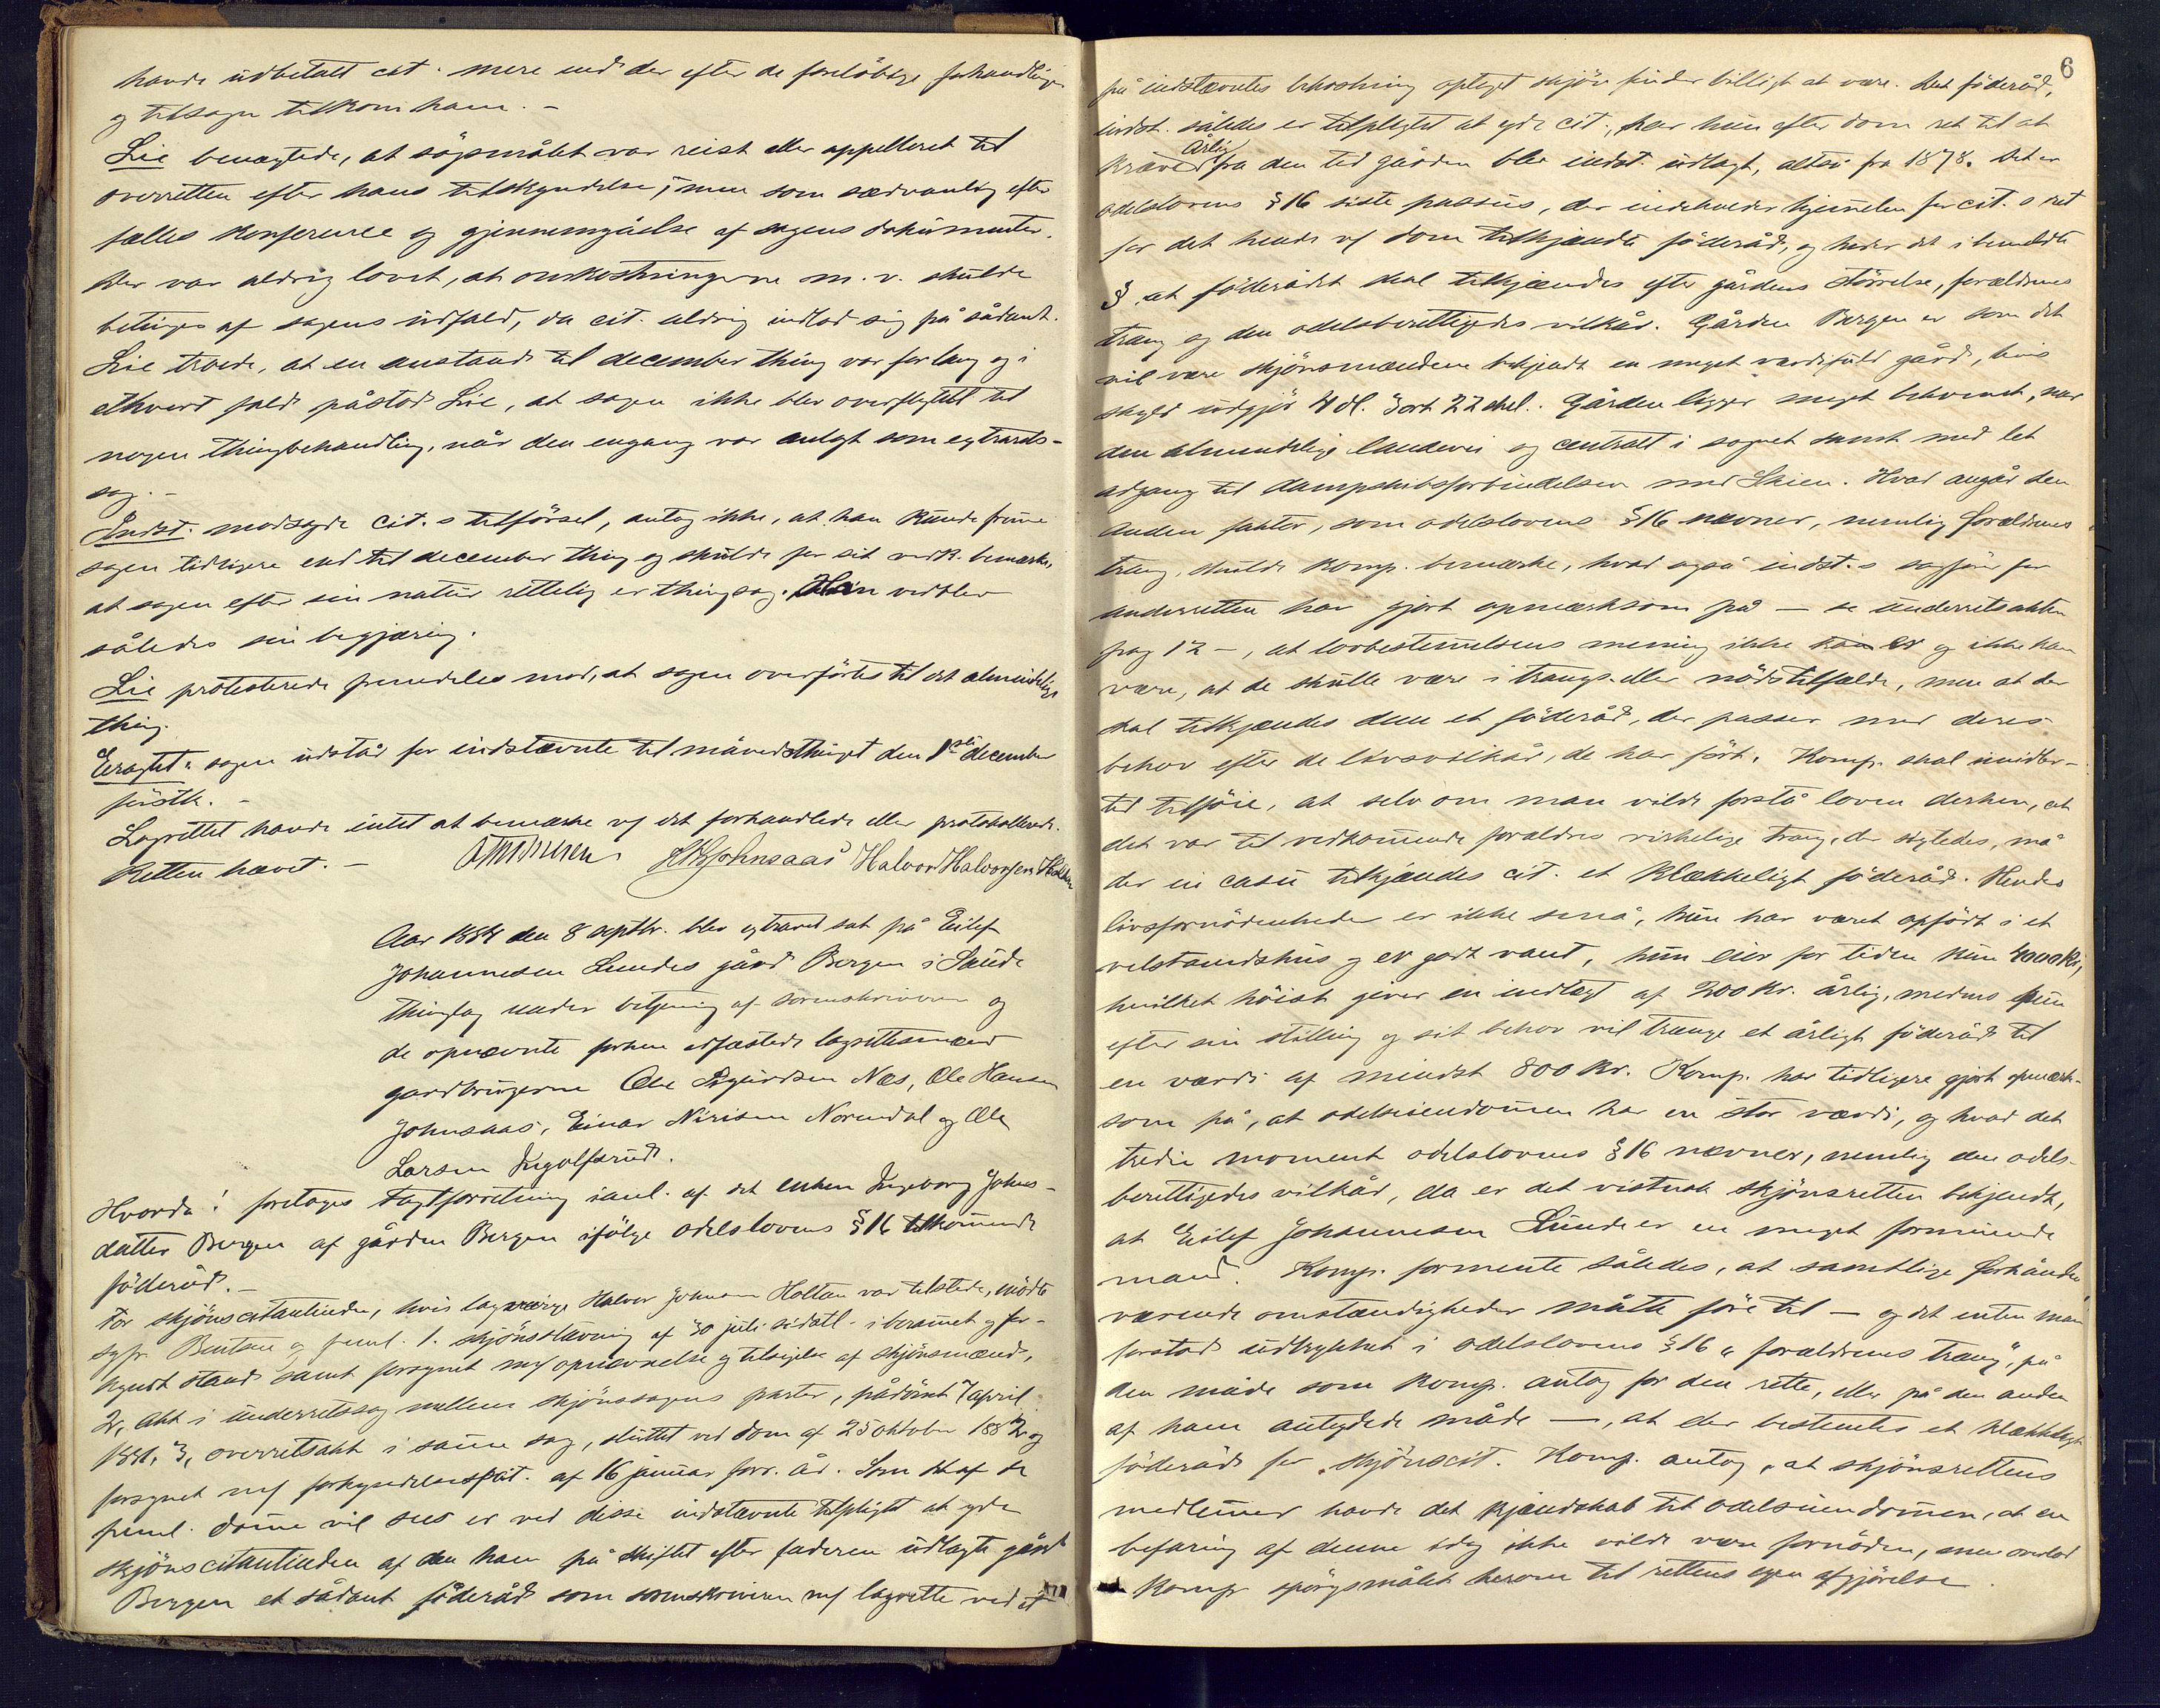 havde udbetalt cit. mere end der efter de foreløbige forhandlinger
og tilsagn tilkom ham. –
Lie benægtede, at søgsmålet var reist eller appelleret til
overretten efter hans tilskyndelse, men som sædvanlig efter
fælles konference og gjennemgåelse af sagens dokumenter.
Der var aldrig lovet, at omkostningerne m. v. skulde
betinges af sagens udfald, da cit. aldrig indlod sig på sådant.
Lie troede, at en anstand til december thing var for lang og i
ethvert fald påstod Lie, at sagen ikke blev overflyttet til
nogen thingbehandling, når den engang var anlagt som extrarets-
sag. –
Indst. modsagde cit.s tilførsel, antog ikke, at han kunde fremme
sagen tidligere end til december thing og skulde for sit vedk. bemærke,
at sagen efter sin natur rettelig er thingsag. Han vedblev
således sin begjæring.
Lie protesterede fremdeles mod, at sagen overførtes til det almindelige
thing.
Eragtet: sagen udstår for indstævnte til månedsthinget den 1ste december
førstk. –
Lagrettet havde intet at bemærke vf det forhandlede eller protokollerede.
Retten hævet. – Halvor Halvorsen
Aar 1884 den 8 septbr. blev extraret sat på Eilef
Johannesen Lundes gård Bergen i Saude
thinglag under betjening af sorenskriveren og
de opnævnte forhen edfæstede lagrettesmænd
gardbrugerne Ole Sigurdsen Næs, Ole Hansen
Johnsaas, Einar Nirisen Norendal og Ole
Larsen Ingolfsrud.
Hvorda: foretoges taxtforretning ianl. af det enken Ingeborg Johns-
datter Bergen af gården Bergen ifølge odelslovens § 16 tilkommende
føderåd. –
For skjønscitantinden, hvis lagværge Halvor Johnsen Holtan var tilstede, mødte
sgfr. Bentsen og freml. 1. skjønsstævning af 30 juli sidstl. i beramet og for-
kyndt stand samt forsynet mf opnævnelse og tilsigelse af skjønsmænd,
2, akt i underretssag mellem skjønssagens parter, pådømt 7 april
1881, 3, overretsakt i samme sag, sluttet ved dom af 25 oktober 1882 og
forsynet mf forkyndelsespåt. af 16 januar forr. år. Som det af de
freml. domme vil sees er ved disse indstævnte tilpligtet at yde
skjønscitantinden af den ham på skiftet efter faderen udlagte gård
Bergen et sådant føderåd som sorenskriveren mf lagrette ved et
6
på indstævntes bekostning optaget skjøn finder billigt at være. Det føderåd,
indst. således er tilpligtet at yde cit., har hun efter dom ret til at
kræve årlig fra den tid gården blev indst. udlagt, altså fra 1878. Det er
odelslovens § 16 siste passus, der indeholder hjemmelen for cit.s ret
for det hende vf dom tilkjendte føderåd, og heder det i bemeldte
§, at føderådet skal tilkjendes efter gårdens størrelse, forældrenes
trang og den odelsberettigedes vilkår. Gården Bergen er som det
vil være skjønsmændene bekjendt en meget værdifuld gård, hvis
skyld udgjør 4 dl. 3 ort 22 skil. Gården ligger meget bekvemt, nær
den almindelige landevei og centralt i sognet samt med let
adgang til dampskibsforbindelsen med Skien. Hvad angår den
anden faktor, som odelslovens § 16 nævner, nemlig forældrenes
trang, skulde komp. bemærke, hvad også indst.s sagfører for
underretten har gjort opmærksom på – se underretsakten
pag 12 –, at lovbestemmelsens mening ikke er og ikke kan
være, at de skulle være i trangs- eller nødstilfælde, men at der
skal tilkjendes dem et føderåd, der passer med deres
behov efter de livsvilkår, de har ført. Komp. skal imidler-
tid tilføie, at selv om man vilde forstå loven derhen, at
det var til vedkommende forældres virkelige trang, der sigtedes, må
der in casu tilkjendes cit. et klækkeligt føderåd. Hendes
livsfornødenheder er ikke små, hun har været opfødt i et
velstandshus og er godt vant, hun eier for tiden kun 4000 kr,
hvilket høist giver en indtægt af 200 kr. årlig, medens hun
efter sin stilling og sit behov vil trænge et årligt føderåd til
en værdi af mindst 800 kr. Komp. har tidligere gjort opmærk-
som på, at odelseiendommen har en stor værdi, og hvad det
tredie moment odelslovens § 16 nævner, nemlig den odels-
berettigedes vilkår, da er det vistnok skjønsretten bekjendt,
at Eilef Johannesen Lunde er en meget formuende
mand. Komp. formente således, at samtlige forhånden-
værende omstændigheder måtte føre til – og det enten man
forstod udtrykket i odelslovens § 16 „forældrenes trang", på
den måde som komp. antog for den rette, eller på den anden
af ham antydede måde –, at der bestemtes et klækkeligt
føderåd for skjønscit. Komp. antog, at skjønsrettens
medlemmer havde det kjendskab til odelseiendommen, at en
befaring af denne idag ikke vilde være fornøden, men overlod
komp. spørgsmålet herom til rettens egen afgjørelse.